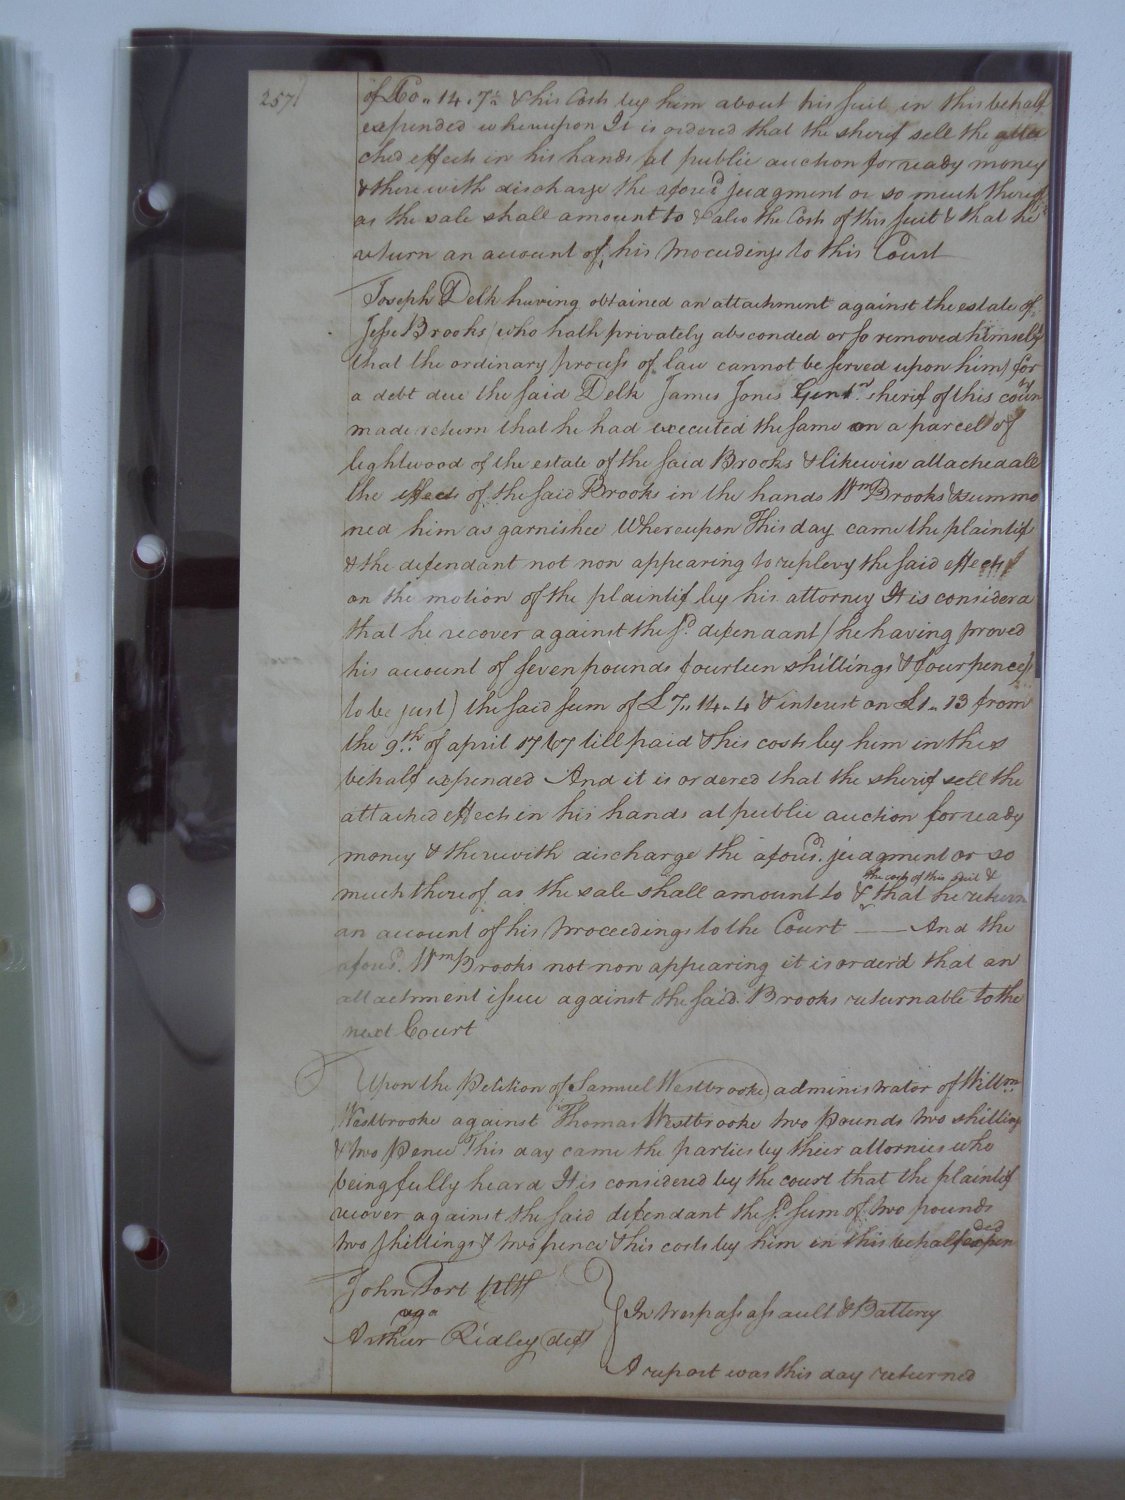 257
of £0.. 14. 7½ & his Costs by him about his suit in this behalf
expended whereupon It is ordered that the sherif sell the atta
ched effects in his hands at public auction for ready money
& therewith discharge the afores.d judgment or so much thereof
as the sale shall amount to & also the Costs of this suit & that he
return an account of his Proceedings to this Court
Joseph Delk having obtained an attachment against the estate of
Jesse Brooks (who hath privately absconded or so removed himself
that the ordinary process of law cannot be served upon him) for
a debt due the said Delk James Jones Gent.n sherif of this coun
ty
made return that he had executed the same on a parcel of
lightwood of the estate of the said Brooks & likewise attached all
the effects of the said Brooks in the hands Wm Brooks & summo
ned him as garnishee Whereupon This day came the plaintif
& the defendant not non appearing to replevy the said effects
on the motion of the plaintif by his attorney It is considerd
that he recover against the s.d defendant (he having proved
his account of seven pounds fourteen shillings & four pence
to be just) the said sum of £ 7.. 14.. 4 & interest on £1.. 13 from
the 9.th of april 1767 till paid & his costs by him in this
behalf expended And it is ordered that the sherif sell the
attached effects in his hands at public auction for ready
money & therewith discharge the afores.d judgment or so
the costs of this suit &
much thereof as the sale shall amount to & that he return
an account of his Proceedings to the Court —— And the
afores.d Wm Brooks not non appearing it is orderd that an
attachment issue against the said Brooks returnable to the
next Court
Upon the Petition of Samuel Westbrooke administrator of Willm
Westbrooke against Thomas Westbrooke two Pounds two shillings
& two Pence This day came the parties by their attornies who
being fully heard It is considered by the court that the plaintif
recover against the said defendant the s.d sum of two pounds
two shillings & two pence & his costs by him in this behalf expen
ded
John Fort plt
aga
Arthur Ridley deft
In trespass assault & Battery
A report was this day returned